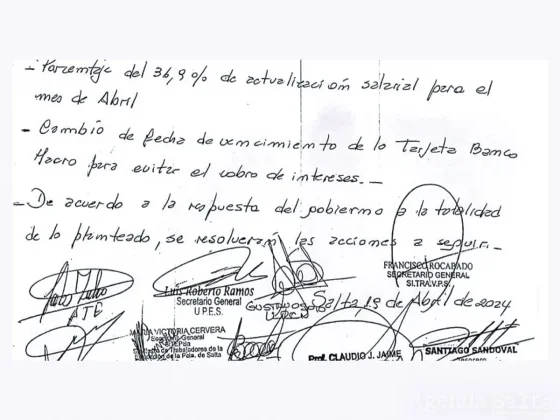 - Porcentaje del 36,9% de actualización salarial para el
mes de Abril
- Cambio de fecha de vencimiento de la Tarjeta Banco
Macro para evitar el cobro de intereses. -
- De acuerdo a la respuesta del gobierno a la totalidad
de lo planteado, se resolverán las acciones a seguir. -
FRANCISCO ROCABADO
SECRETARIO GENERAL
SI.TRA.V.P.S.
Luis Roberto Ramos
Secretario General
U.P.E.S.
ATE
Salta, 19 de Abril de 2024
MARIA VICTORIA CERVERA
Secretaria General
de Trabajadores de la
de la Pcia. de Salta
Prof. CLAUDIO J. JAIME
SANTIAGO SANDOVAL
Agencia Salta